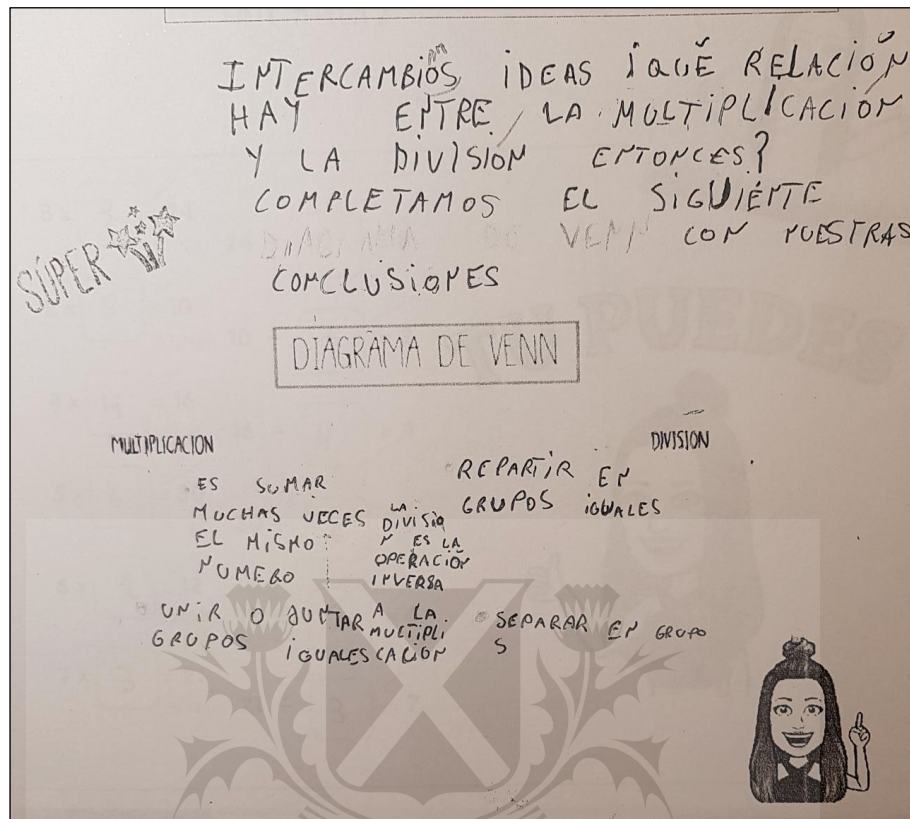 INTERCAMBIOS IDEAS ¡QUÉ RELACIÓN
HAY ENTRE LA MULTIPLICACIÓN
Y LA DIVISIÓN ENTONCES?
COMPLETAMOS EL SIGUIÉNTE
DIAGRAMA DE VENN CON NUESTRAS
CONCLUSIONES
SÚPER
DIAGRAMA DE VENN
MULTIPLICACION
DIVISION
ES SUMAR
MUCHAS VECES
EL MISMO
NUMERO
UNIR O JUNTAR
GRUPOS IGUALES
LA
DIVISIÓ
N ES LA
OPERACIÓN
INVERSA
A LA
MULTIPLI
CACIÓN
REPARTIR EN
GRUPOS IGUALES
SEPARAR EN GRUPO
S